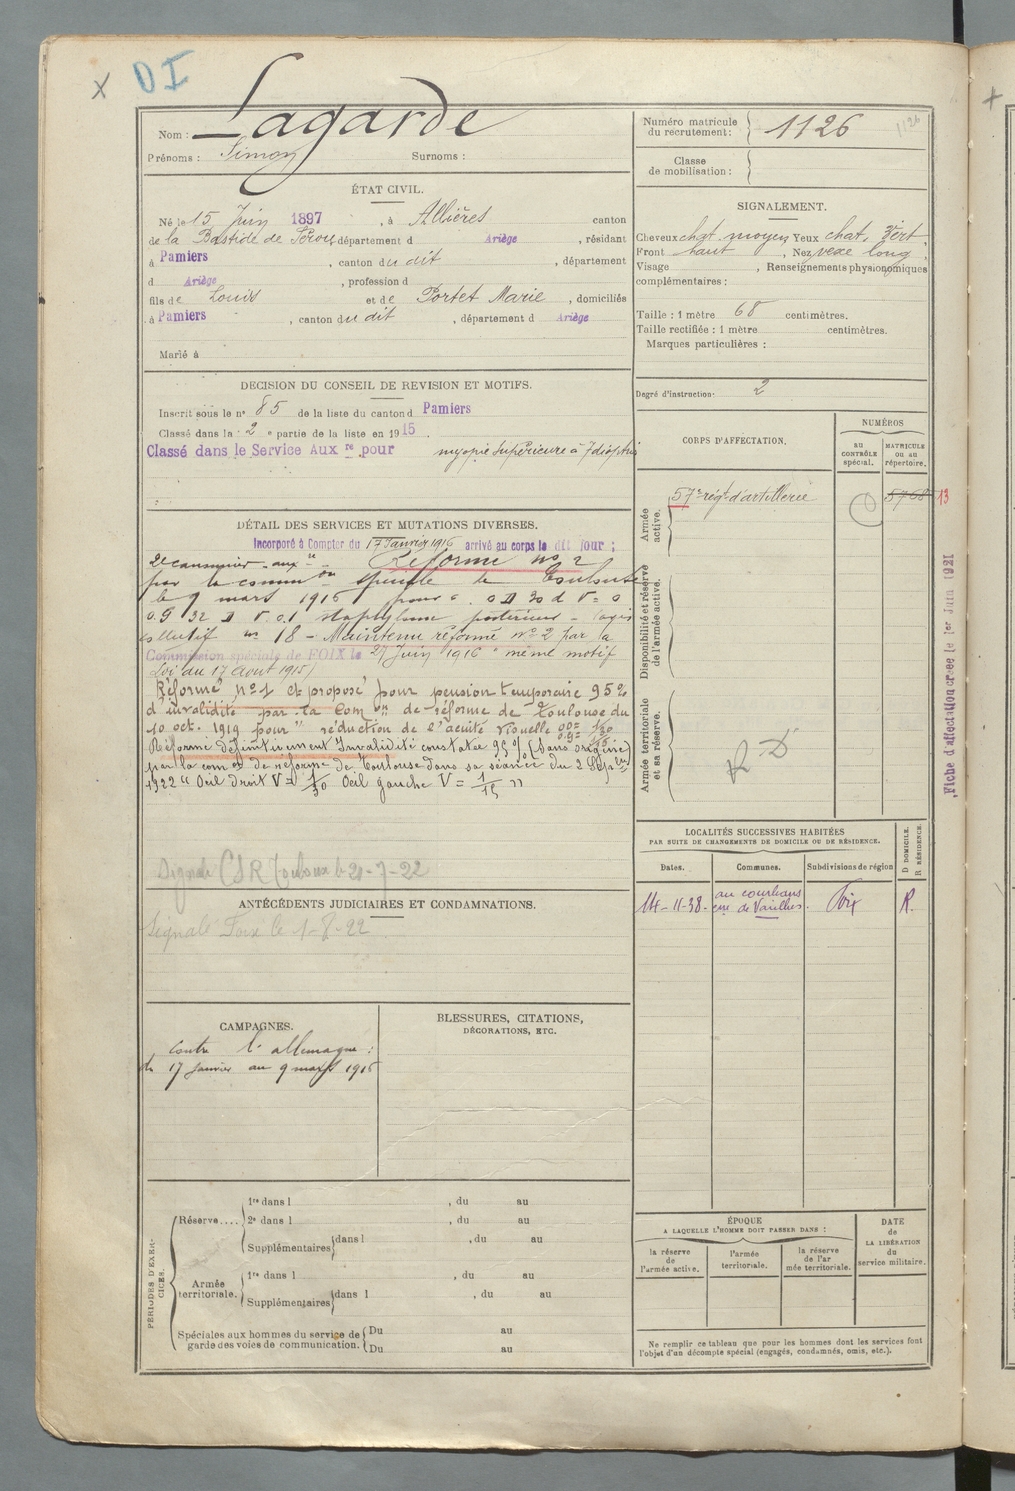 X DI
Nom : Lagarde
Prénoms : Simon Surnoms :
ÉTAT CIVIL.
Né le 15 Juin 1897, à Allières canton
de la Bastide de Sérou département d Ariège, résidant
à Pamiers, canton du dit, département
d Ariège, profession d
fils de Louis et de Portet Marie, domiciliés
à Pamiers, canton du dit, département d Ariège
Marié à
DECISION DU CONSEIL DE REVISION ET MOTIFS.
Inscrit sous le n° 85 de la liste du canton d Pamiers
Classé dans la 2e partie de la liste en 1915.
Classé dans le Service Aux re pour myopie supérieure à 7 dioptries
DÉTAIL DES SERVICES ET MUTATIONS DIVERSES.
Incorporé à Compter du 17 Janvier 1916 arrivé au corps le dit jour ;
2e canonnier aux re Réformé no 2
par la common spéciale de Toulouse
le 9 mars 1916 pour
staphylome postérieur
collectif no 18 – Maintenu réformé no 2 par la
Commission spéciale de FOIX le 27 Juin 1916 " même motif
Loi du 17 Aout 1915)
Réformé no 1 et proposé pour pension temporaire 95 %
d'invalidité par la Comon de réforme de Toulouse du
10 oct. 1919 pour " réduction de l'acuité visuelle OD = 1/30
OG = 1/15
Réformé définitivement Invalidité constatée 95 % (sans origine)
par la comon de réforme de Toulouse dans sa séance du 2 Septbre
1922 " Oeil droit V = 1/30 Oeil gauche V = 1/15 "
Signalé CSR Toulouse le 21-7-22
ANTÉCÉDENTS JUDICIAIRES ET CONDAMNATIONS.
Signalé Foix le 1-8-22
CAMPAGNES.
Contre l'allemagne :
du 17 Janvier au 9 mars 1916
BLESSURES, CITATIONS,
DÉCORATIONS, ETC.
PÉRIODES D'EXERCICES.
Réserve.... 1re dans l , du au
2e dans l , du au
Supplémentaires dans l , du au
Armée territoriale. 1re dans l , du au
Supplémentaires dans l , du au
Spéciales aux hommes du service de garde des voies de communication. Du au
Du au
Numéro matricule du recrutement : 1126
1126
Classe de mobilisation :
SIGNALEMENT.
Cheveux chat. moyen Yeux chat. vert
Front haut, Nez vexe long
Visage , Renseignements physionomiques
complémentaires :
Taille : 1 mètre 68 centimètres.
Taille rectifiée : 1 mètre centimètres.
Marques particulières :
Degré d'instruction : 2
CORPS D'AFFECTATION.
NUMÉROS
AU CONTRÔLE spécial.
MATRICULE OU AU répertoire.
Armée active.
57e régt d'artillerie 5768 13
Disponibilité et réserve de l'armée active.
Armée territoriale et sa réserve.
R D
Fiche d'affectation créée le 1er Juin 1921
LOCALITÉS SUCCESSIVES HABITÉES
PAR SUITE DE CHANGEMENTS DE DOMICILE OU DE RÉSIDENCE.
D DOMICILE.
R RÉSIDENCE.
Dates. Communes. Subdivisions de région
14-11-38. au courbans Foix R.
cne de Varilhes.
ÉPOQUE
A LAQUELLE L'HOMME DOIT PASSER DANS :
la réserve de l'armée active.
l'armée territoriale.
la réserve de l'armée territoriale.
DATE
de
LA LIBÉRATION
du
service militaire.
Ne remplir ce tableau que pour les hommes dont les services font
l'objet d'un décompte spécial (engagés, condamnés, omis, etc.).